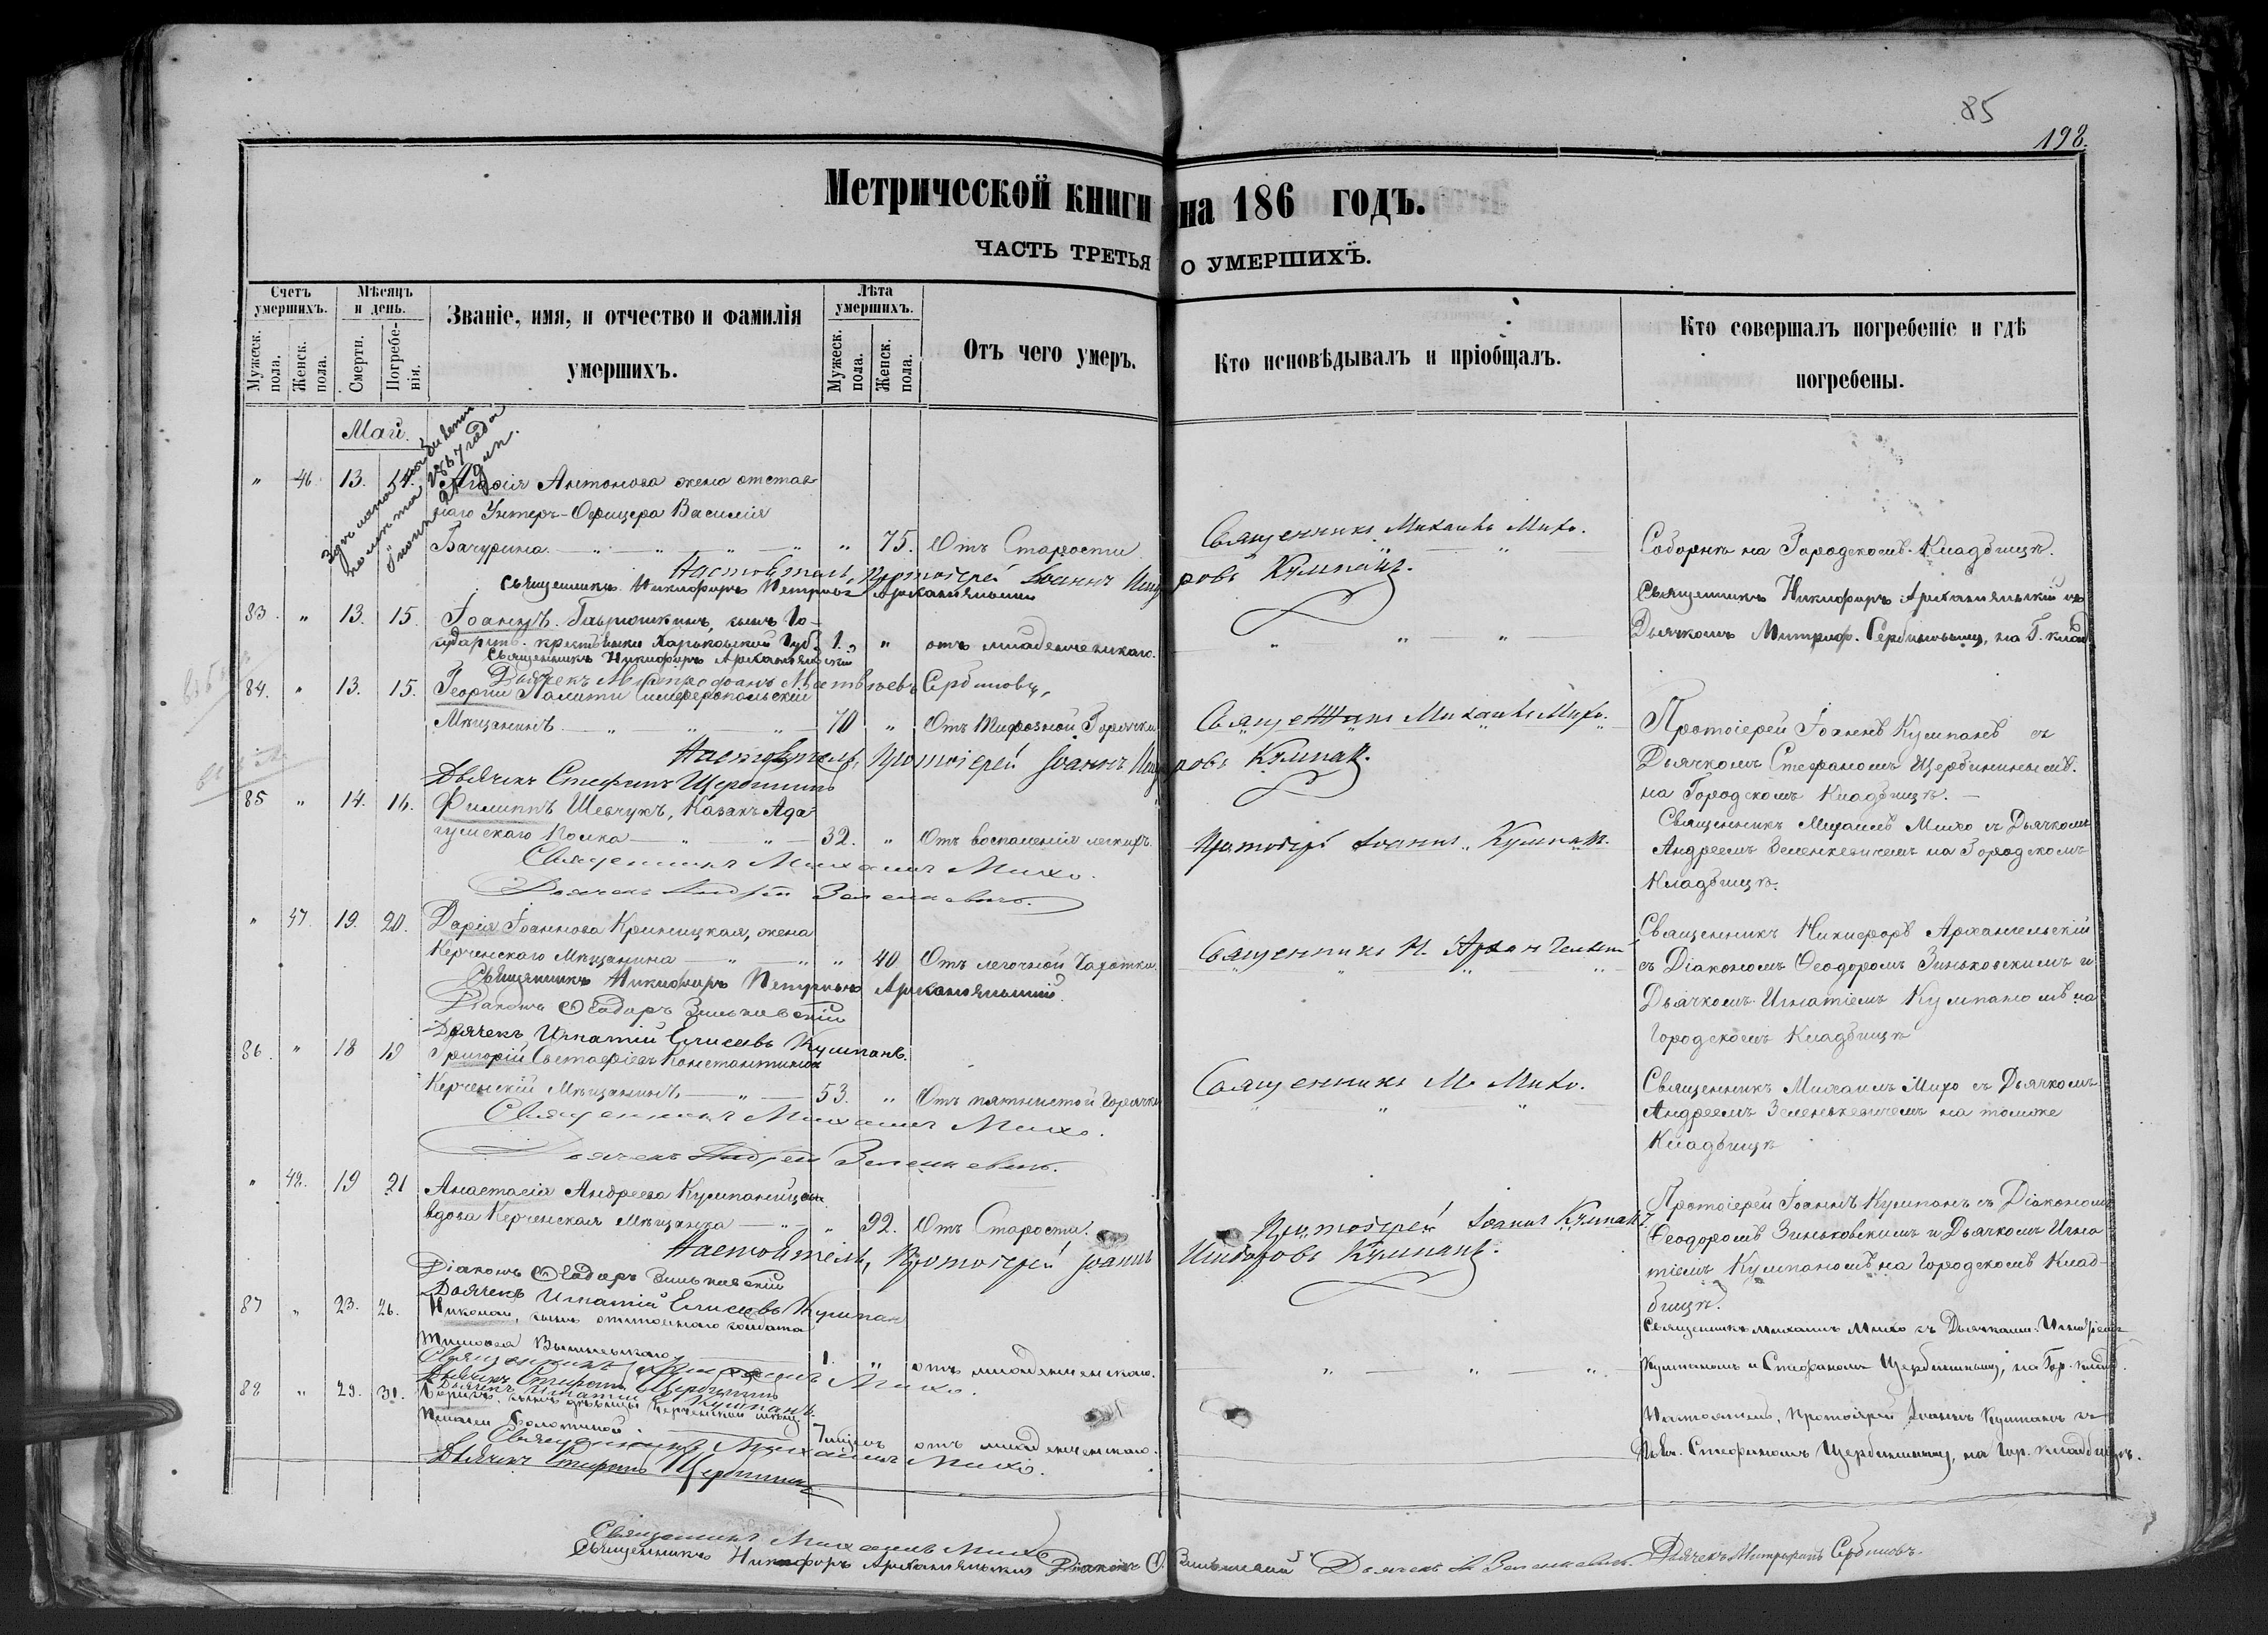 85
198.
Метрической книги на 186 годъ.
ЧАСТЬ ТРЕТЬЯ О УМЕРШИХЪ.
Счетъ умершихъ.
Мужеск. пола.
Женск. пола.
Мѣсяцъ и день.
Смерти.
Погребенія.
Званіе, имя, и отчество и фамилія
умершихъ.
Лѣта умершихъ.
Мужеск. пола.
Женск. пола.
Отъ чего умеръ.
Кто исповѣдывалъ и пріобщалъ.
Кто совершалъ погребеніе и гдѣ
погребены.
Май.
1867 года
" 46 13. 14. Антонова жена отстав
наго Унтеръ-Офицера Василія
Бачурина " 75. Отъ Старости Священникъ Михаилъ Михо. Соборнѣ на Городскомъ Кладбищѣ.
Настоятель, Протоіерей Іоаннъ Кумпанъ.
Священникъ Никифоръ Петровъ Архангельскій
Священникъ Никифоръ Архангельскій съ
83. " 13. 15. Іоаннъ Гаврюшкинъ, сынъ Го-
сударств. крестьянки Харьковской Губ. 1. " отъ младенческаго. " " " Дьячкомъ Митроф. Сербиновымъ, на Г. клад.
Священникъ Никифоръ Архангельскій
Дьячекъ Митрофанъ Матвѣевъ Сербиновъ,
84. " 13. 15. Георгій Симферопольскій
Мѣщанинъ 70 " Отъ Тифозной Горячки Священникъ Михаилъ Михо. Протоіерей Іоаннъ Кумпанъ съ
Настоятель, Протоіерей Іоаннъ Кумпанъ.
Дьячкомъ Стефаномъ Щербининымъ.
Дьячекъ Стефанъ Щербининъ
на Городскомъ Кладбищѣ.
85 " 14. 16. Филиппъ Шевчукъ, Казакъ Ада-
гумскаго Полка 32. " Отъ воспаленія легкихъ. Протоіерей Іоаннъ Кумпанъ.
Священникъ Михаилъ Михо съ Дьячкомъ
Андреемъ Зеленкевичемъ на Городскомъ
Кладбищѣ.
Священникъ Михаилъ Михо.
Дьячекъ Андрей Зеленкевичъ.
" 47. 19. 20. Дарія Іоаннова Криницкая, жена
Керченскаго Мѣщанина " 40 Отъ легочной Чахотки. Священникъ Н. Архангельскій
Священникъ Никифоръ Архангельскій
съ Діакономъ Ѳеодоромъ Зиньковскимъ и
Дьячкомъ Игнатіемъ Кумпаномъ на
Городскомъ Кладбищѣ
Священникъ Никифоръ Петровъ Архангельскій.
Діаконъ Ѳеодоръ Зиньковскій
Дьячекъ Игнатій Елисеевъ Кумпанъ.
86. " 18 19 Григорій Евстафіевъ Константиновъ
Керченскій Мѣщанинъ 53. " Отъ пятнистой Горячки Священникъ М. Михо. Священникъ Михаилъ Михо съ Дьячкомъ
Андреемъ Зеленкевичемъ на томже
Кладбищѣ
Священникъ Михаилъ Михо.
Дьячекъ Андрей Зеленкевичъ.
" 48. 19 21 Анастасія Андреева
вдова Керченская мѣщанка " 92. Отъ Старости. Протоіерей Іоаннъ Кумпанъ
Протоіерей Іоаннъ Кумпанъ съ Діакономъ
Ѳеодоромъ Зиньковскимъ и Дьячкомъ Игна-
тіемъ Кумпаномъ на Городскомъ Клад-
бищѣ.
Настоятель, Протоіерей Іоаннъ Кумпанъ.
Діаконъ Ѳеодоръ Зиньковскій
Дьячекъ Игнатій Елисеевъ Кумпан
87 " 23. 26. Николай, сынъ солдата
1. " отъ младенческаго. " " " Священникъ Михаилъ Михо съ Дьячками: Игнатіемъ
Кумпаномъ и Стефаномъ Щербининымъ, на Гор. кладб.
Священникъ Михаилъ Михо.
Дьячекъ Стефанъ Щербининъ
Дьячекъ Игнатій Кумпанъ.
88 " 29. 31. Керченской
отъ младенческаго.
Настоятель, Протоіерей Іоаннъ Кумпанъ съ
Дьяч. Стефаномъ Щербининымъ, на Гор. кладбищѣ.
Священникъ Михаилъ Михо.
Дьячекъ Стефанъ Щербининъ
Священникъ Михаилъ Михо
Священникъ Никифоръ Архангельскій Діаконъ Ѳ. Зиньковскій Дьячекъ А Зеленкевичъ. Дьячекъ Митрофанъ Сербиновъ.